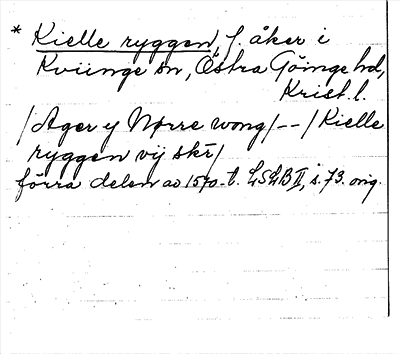 * Kielle ryggen, f. åker i
Kviinge sn, Östra Göinge hd,
Krist. l.
/Ager y Nørre wong/--/Kielle
ryggen vij skē/
förra delen av 1570-t. LSLB II, s. 73. orig.